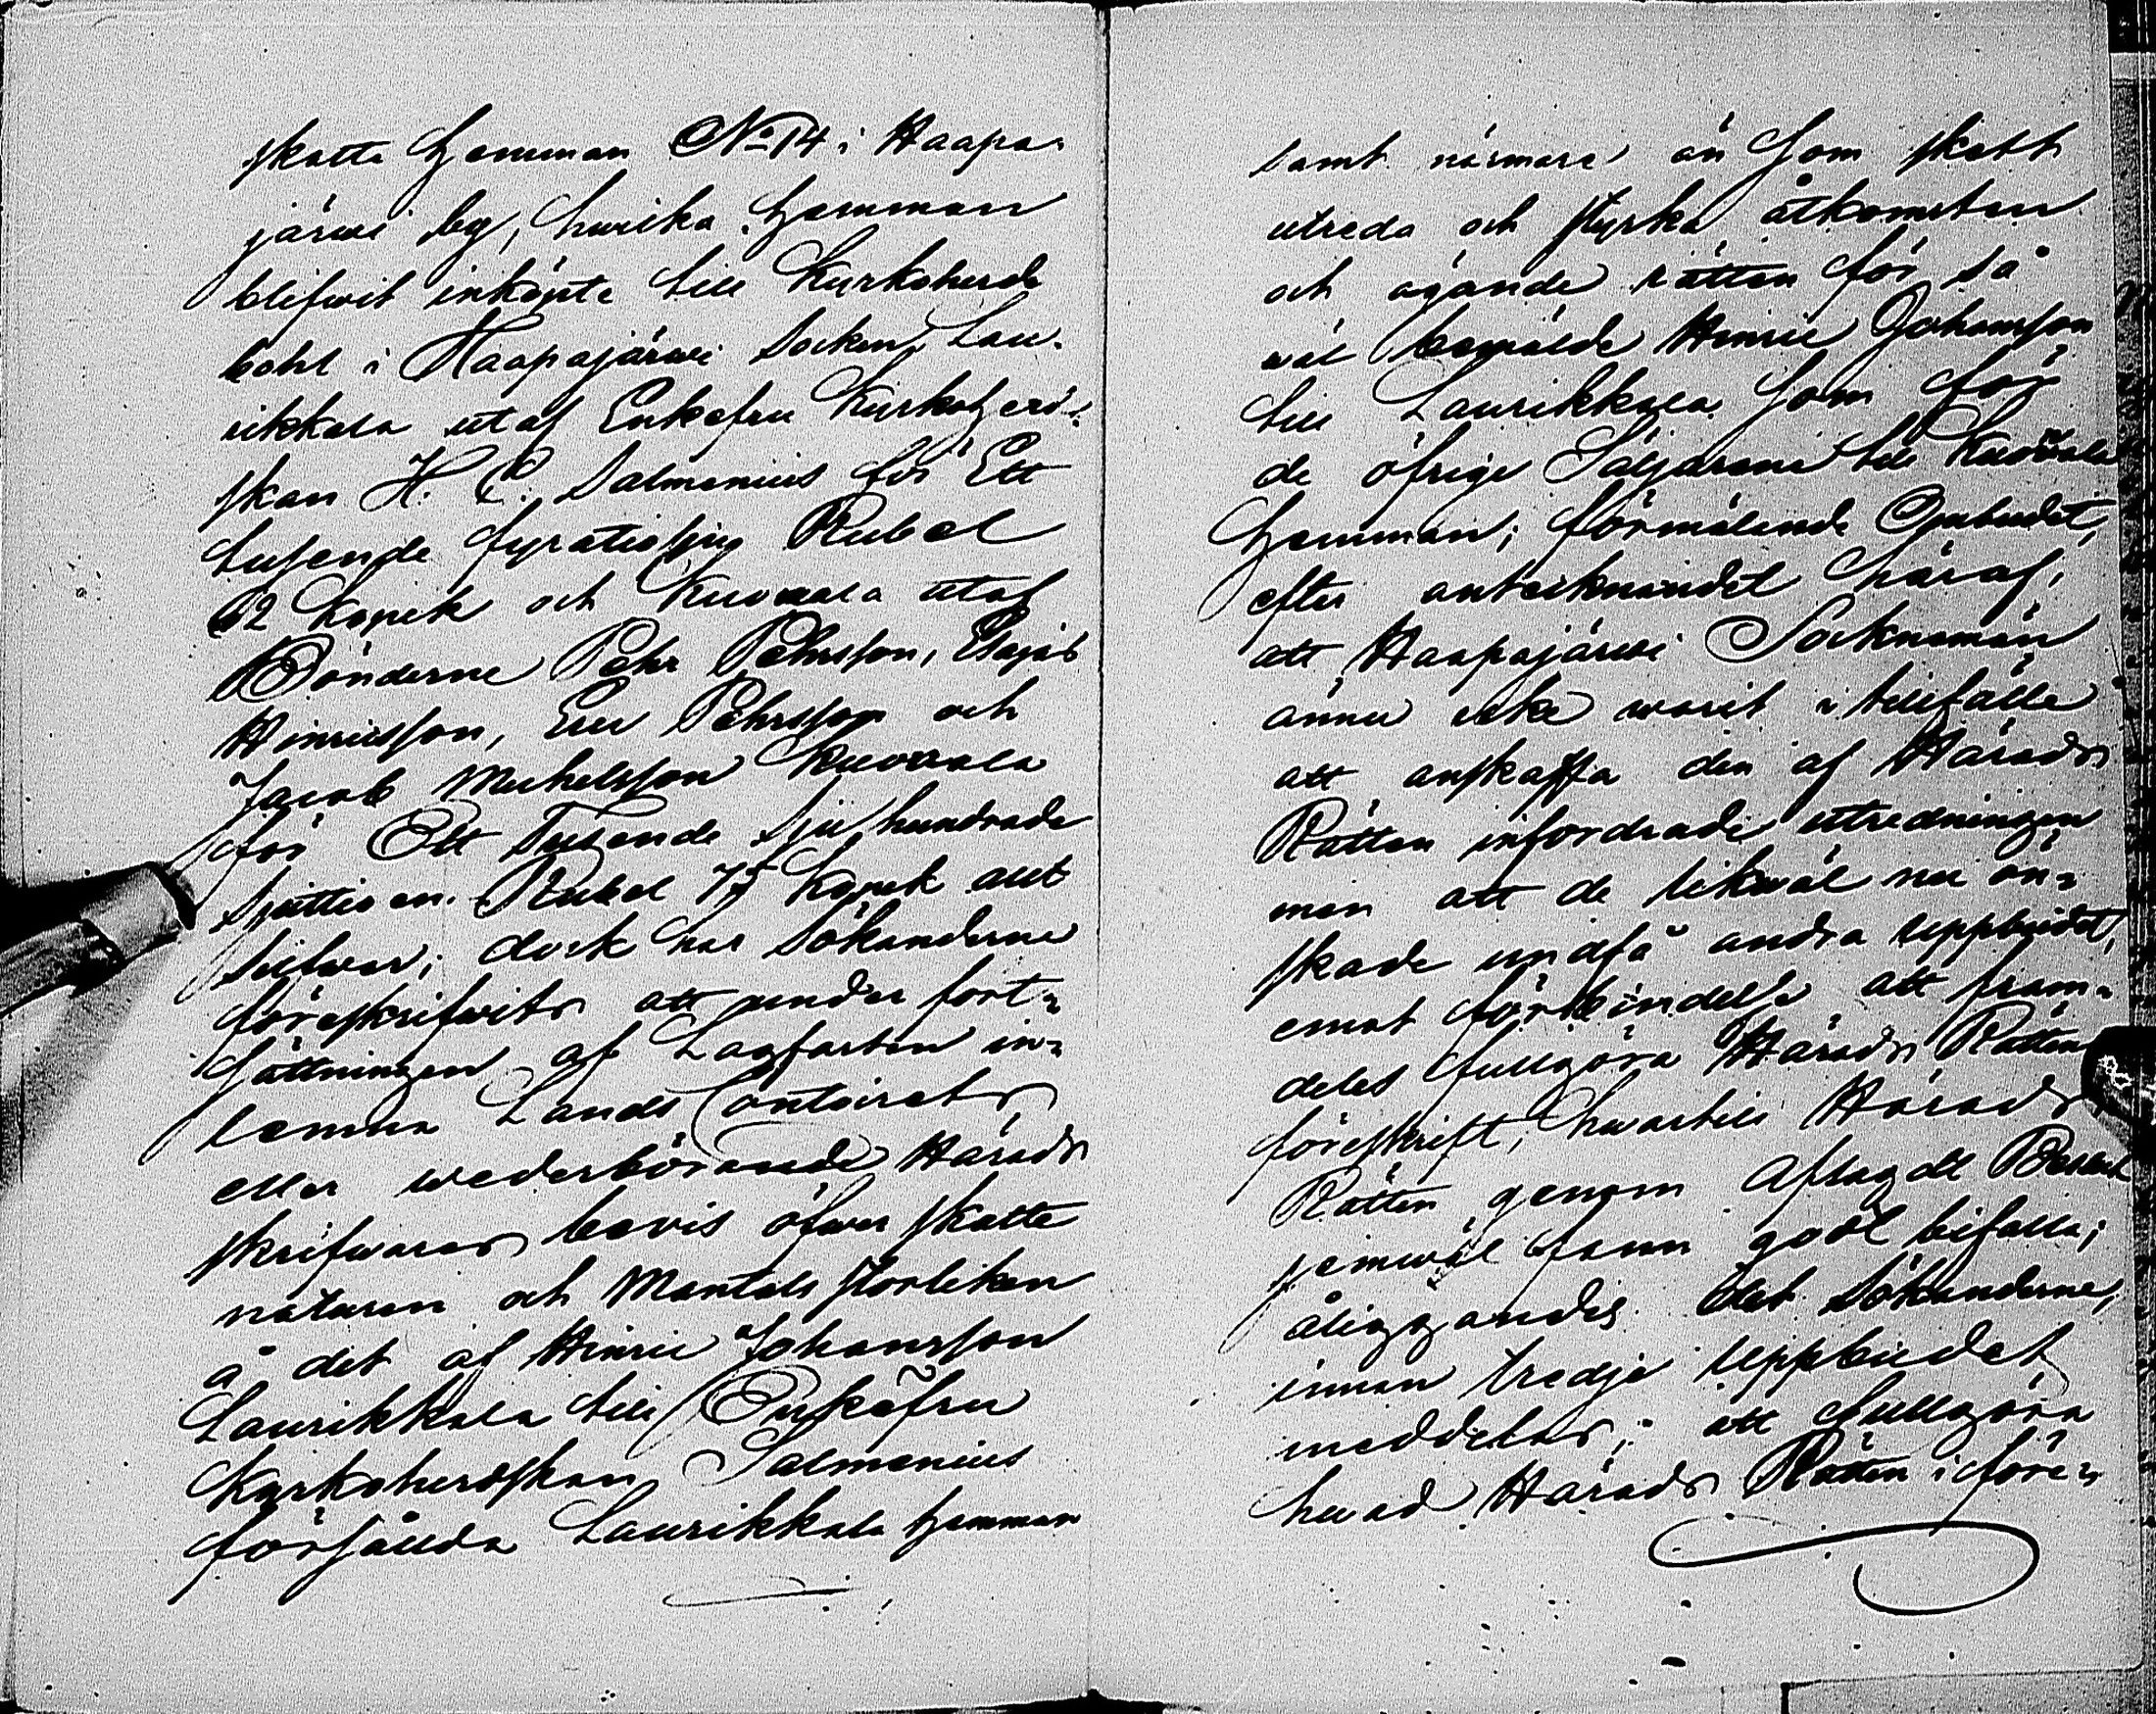 skatte Hemman No 14 i Haapa-
järwi by, hwilka Hemman
blifwit inköpte till Kyrkoherde
bohl i Haapajärwi Socken, Lau-
rikkala utaf Enkefru Kyrkoherd-
skan H. C. Salmenius för Ett
tusende fyratiosju Rubel
62 Kopek och Kuoosala utaf
Bönderne Pehr Pehrsson, Esajas
Hinricsson, Eric Pehrsson och
Jacob Michelsson Kuoosala
för Ett Tusende Sju hundrade
sjuttio en Rubel 75 Kopek allt
Silfwer; dock har Sökanderne
föreskrifwits att under fort-
sättningen af Lagfarten in-
lemna Lands Contoirets
eller wederbörande Härads
skrifwares bevis öfwer skatte
naturen och Mantals storleken
å det af Hinric Johansson
Laurikkala till Enkefru
Kyrkoherdskan Salmenius
försållda Laurikkala Hemman
samt närmare än som skett
utreda och styrka åtkomsten
och ägande rätten för så
wäl bemälde Hinric Johansson
till Laurikkala som för
de öfrige Säljarene till Kuoosala
Hemman; förmälende Ombudet,
efter anteknandet häraf,
att Haapajärwi Sockneman
ännu icke warit i tillfälle
att anskaffa den af Härads
Rätten infordrade utredningen
men att de likwäl nu ön-
skade undfå andra uppbudet,
emot förbindelse att fram-
deles fullgöra Härads Rättens
föreskrift, hwartill Härads
Rätten genom afsagdt Beslut
jemwäl fann godt bifalla;
åliggandes det Sökanderne,
innan tredje uppbudet
meddelas, att fullgöra
hwad Härads Rätten i före-